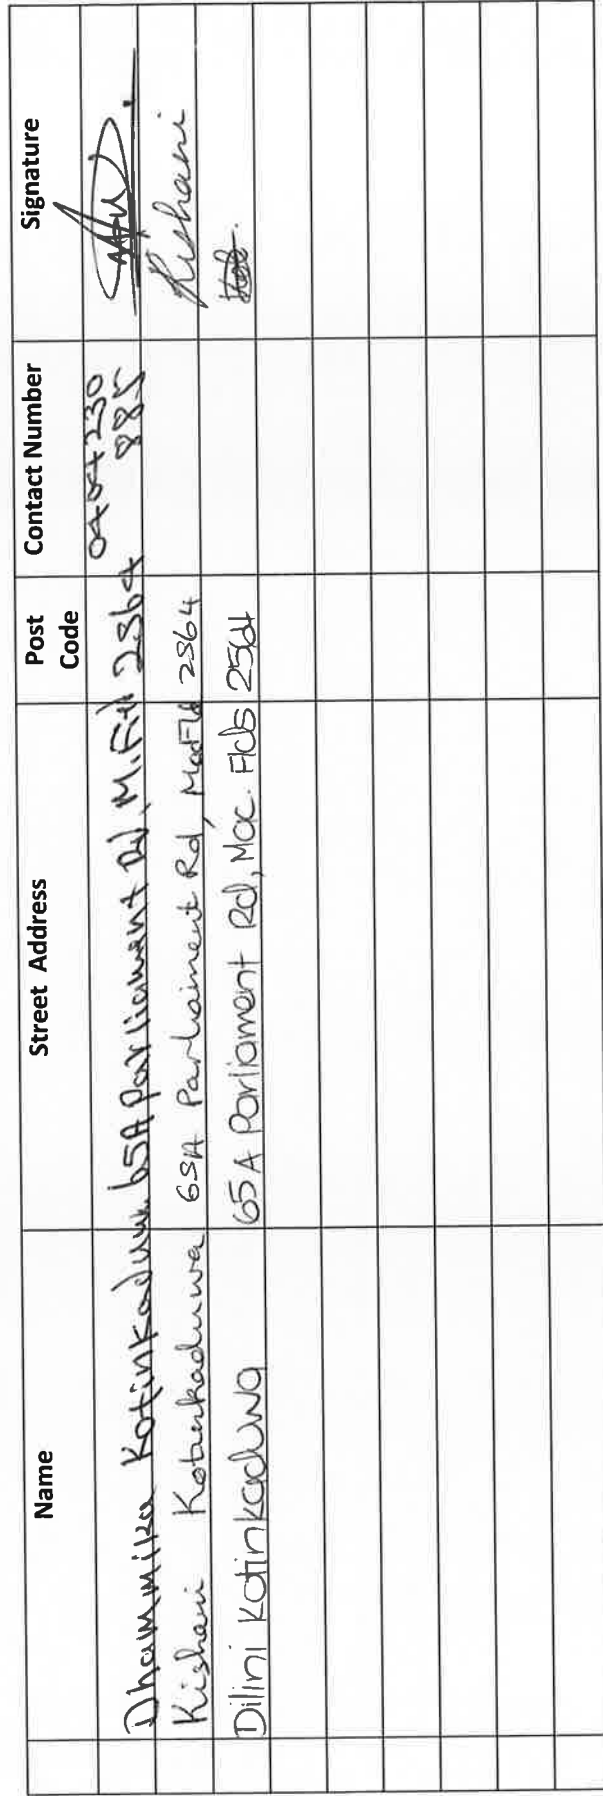 Name Street Address Post Code Contact Number Signature
Dhammika Kotinkaduwa 65A Parliament Rd, M. Fild 2564 0404230 885
Kishani Kotinkaduwa 65A Parliament Rd, MacFld 2564 Kishani
Dilini Kotinkaduwa 65A Parliament Rd, Mac. Flds 2564